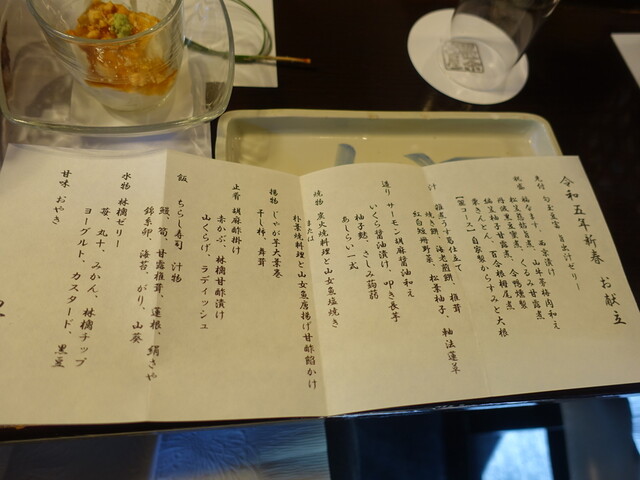 令和五年新春 お献立
先付 勺玉豆富 旨出汁ゼリー
祝肴 柚なます、西京漬け茶梅肉和え
鮎甘露煮、山牛蒡、くるみ甘露煮
丹波黒豆蜜煮、合鴨燻製
鮎笠柚子甘露煮、百合根梅尾煮
栗きんとん
【蕪コース】自家製からすみと大根
汁 雑煮うす葛仕立て
焼き餅、海老煎餅、椎茸
紅白短冊野菜、松葉柚子、軸法蓮草
造り サーモン胡麻醤油和え
いくら醤油漬け、叩き長芋
柚子麩、さしみ蒟蒻
あしらい一式
焼物 炭火焼料理と山女魚塩焼き
または
朴葉焼料理と山女魚唐揚げ甘酢餡かけ
揚物 じゃが芋大葉巻
干し柿、舞茸
止肴 胡麻酢掛け
赤かぶ、林檎甘酢漬け
山くらげ、ラディッシュ
飯 ちらし寿司 汁物
鰻、筍、甘露椎茸、蓮根、絹さや
錦糸卵、海苔、がり、山葵
水物 林檎ゼリー
苺、丸十、みかん、林檎チップ
ヨーグルト、カスタード、黒豆
甘味 おやき